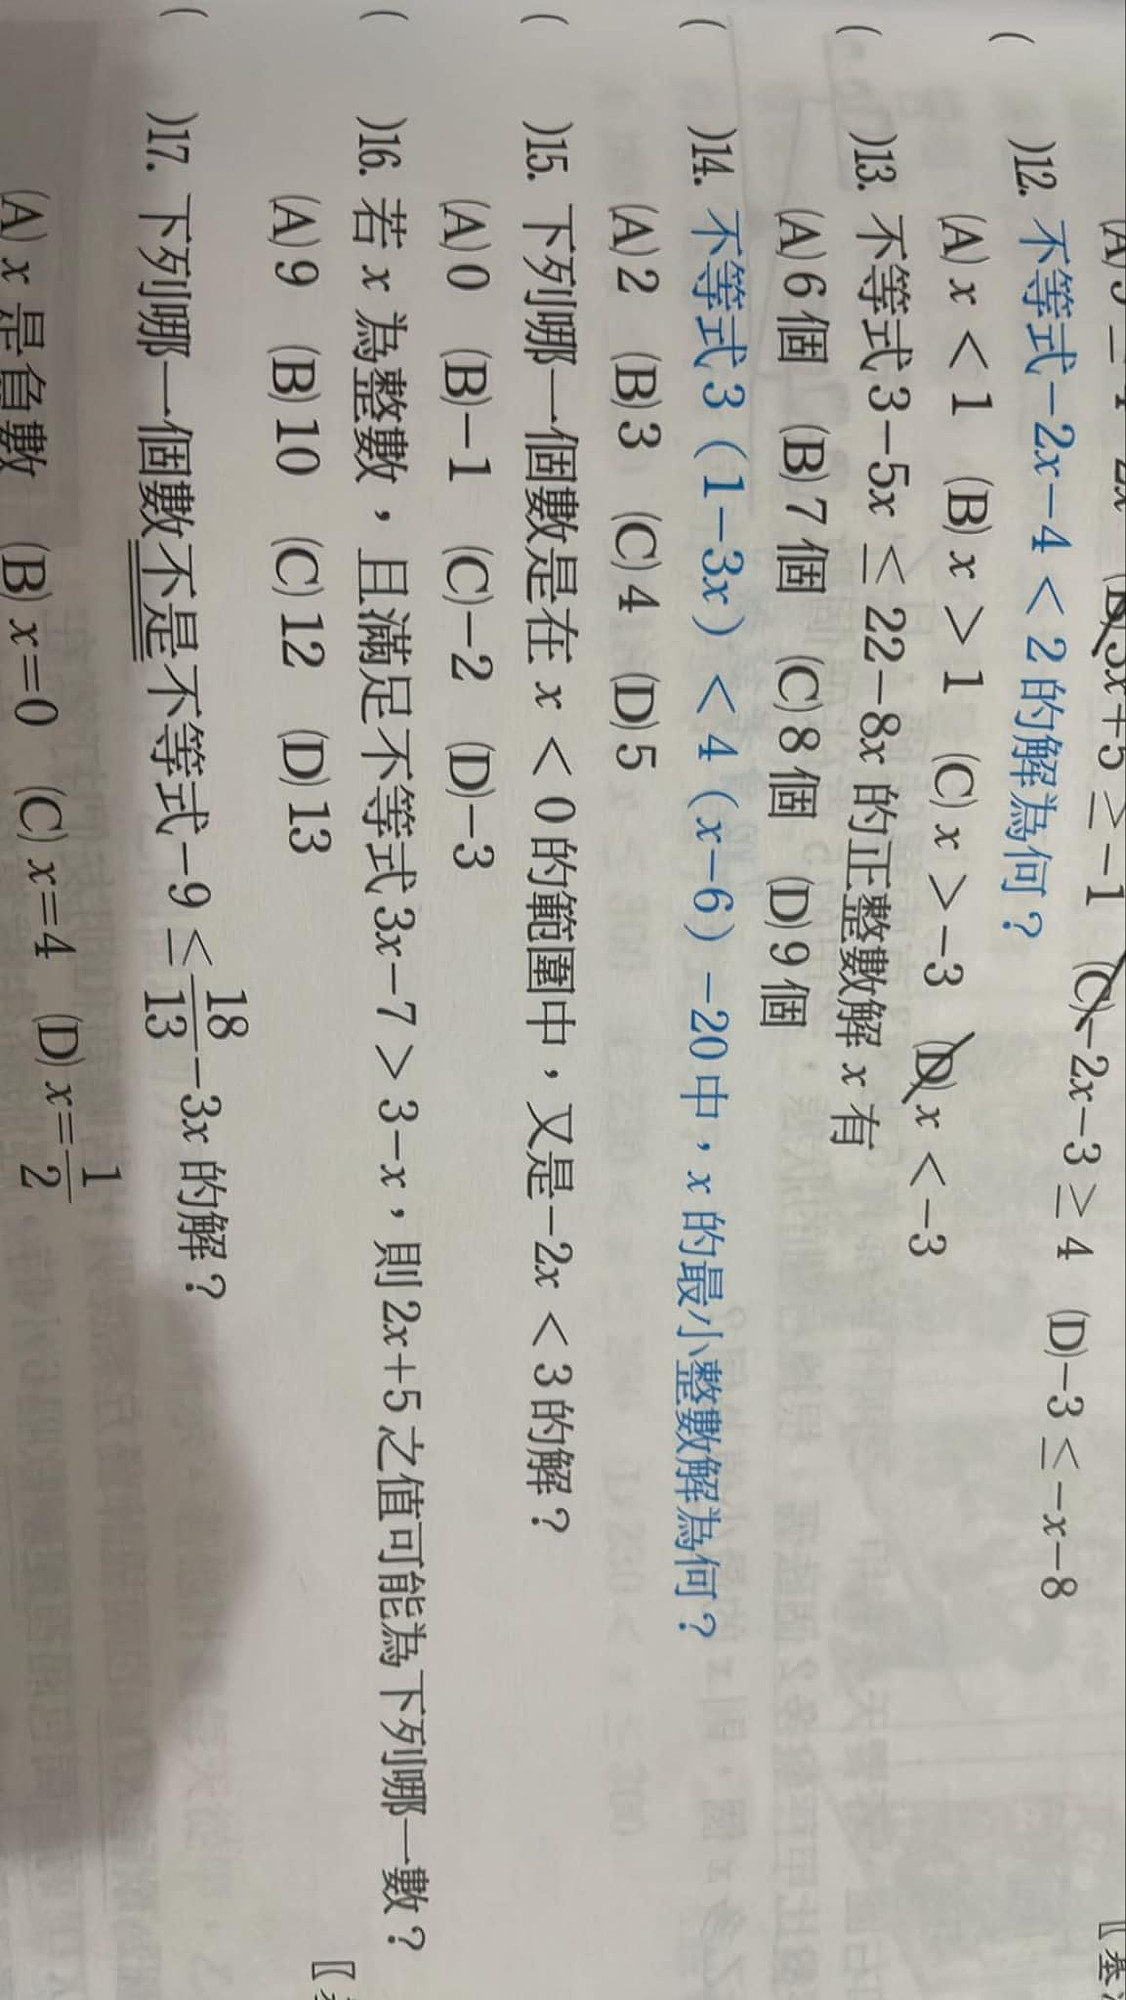 (B)3x+5≥-1 (C)-2x-3≥4 (D)-3≤-x-8
( )12. 不等式-2x-4<2的解為何?
(A) x<1 (B) x>1 (C) x>-3 (D) x<-3
( )13. 不等式3-5x≤22-8x的正整數解x有
(A)6個 (B)7個 (C)8個 (D)9個
( )14. 不等式3(1-3x)<4(x-6)-20中,x的最小整數解為何?
(A)2 (B)3 (C)4 (D)5
( )15. 下列哪一個數是在x<0的範圍中,又是-2x<3的解?
(A)0 (B)-1 (C)-2 (D)-3
( )16. 若x為整數,且滿足不等式3x-7>3-x,則2x+5之值可能為下列哪一數?
(A)9 (B)10 (C)12 (D)13
( )17. 下列哪一個數不是不等式-9≤18/13-3x的解?
(A) x是負數 (B) x=0 (C) x=4 (D) x=1/2